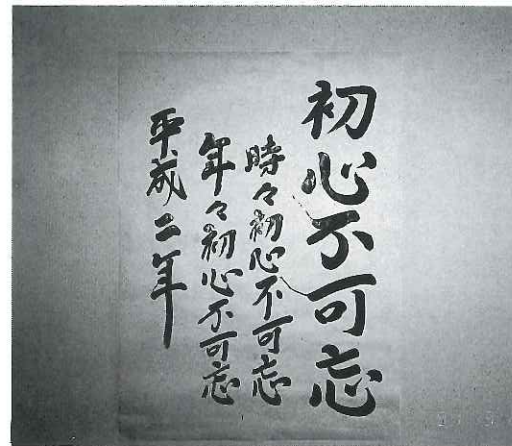 初心不可忘
時々初心不可忘
年々初心不可忘
平成二年